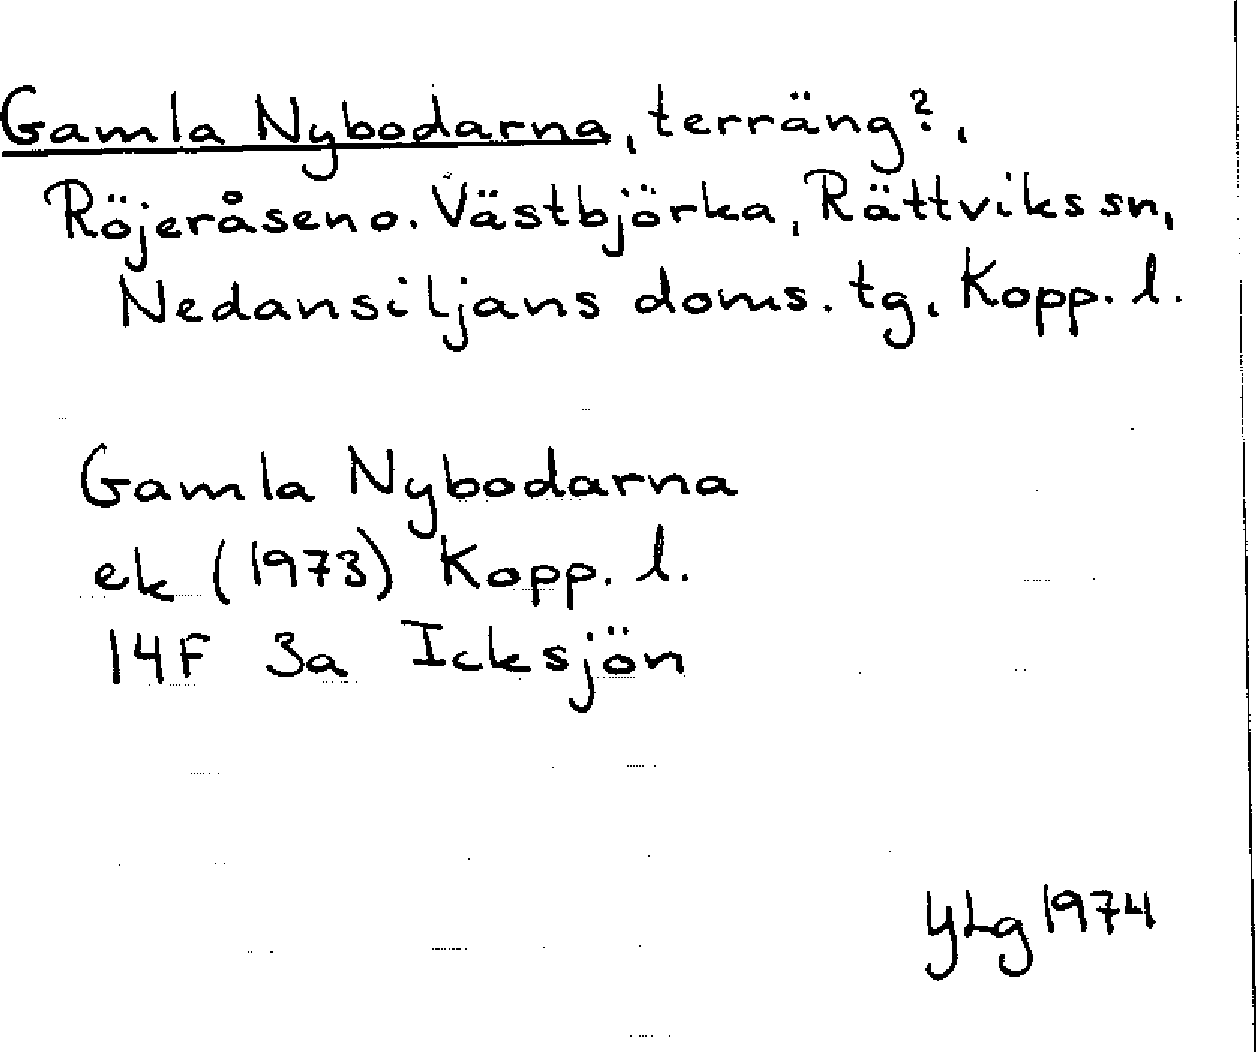 Gamla Nybodarna, terräng?,
Röjeråsen o. Västbjörka, Rättviks sn,
Nedansiljans doms. tg, Kopp. l.
Gamla Nybodarna
ek (1973) Kopp. l.
14F 3a Icksjön
YLg 1974